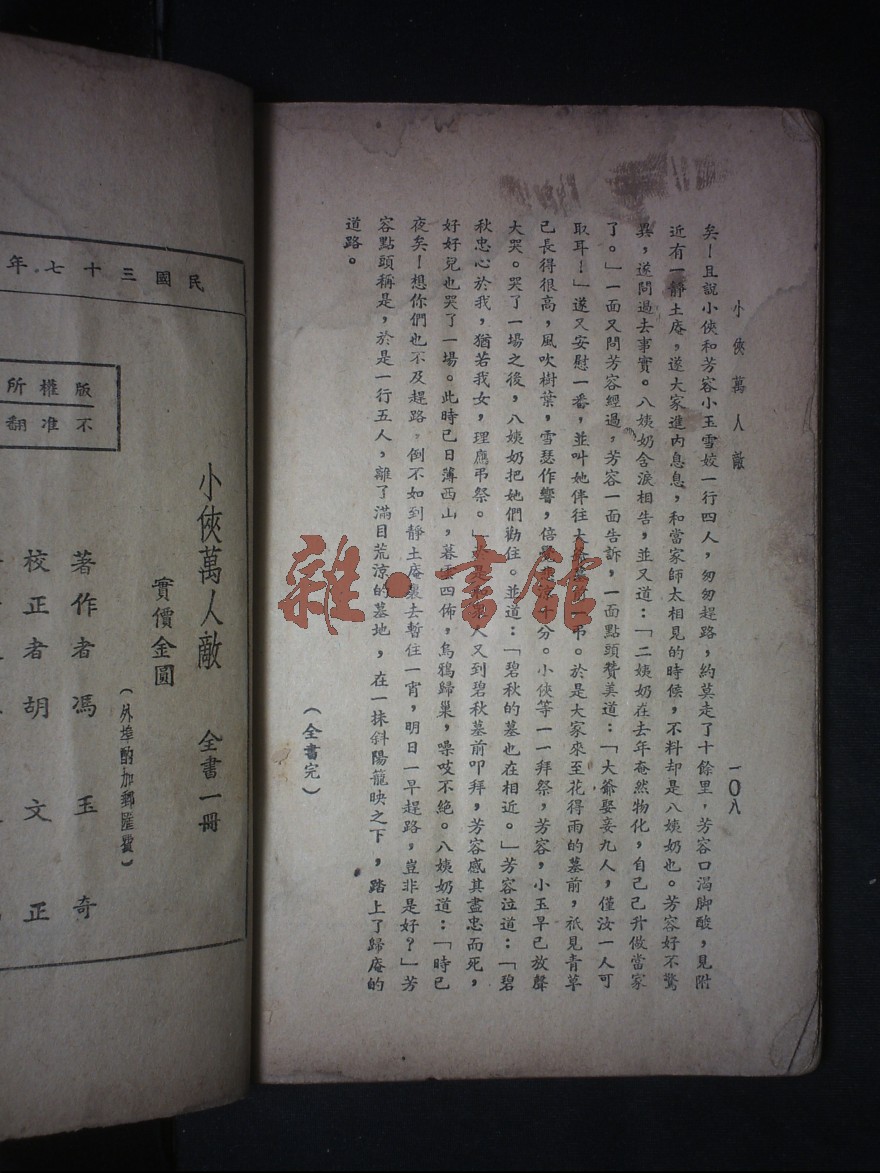 小俠萬人敵
一〇八
矣！且說小俠和芳容小玉雪姣一行四人，匆匆趕路，約莫走了十餘里，芳容口渴脚酸，見附
近有一靜土庵，遂大家進內息息，和當家師太相見的時候，不料却是八姨奶也。芳容好不驚
異，遂問過去事實。八姨奶含淚相告，並又道：「二姨奶在去年奄然物化，自己已升做當家
了。」一面又問芳容經過，芳容一面告訴，一面點頭贊美道：「大爺娶妾九人，僅汝一人可
取耳！」遂又安慰一番，並叫她伴往大一弔。於是大家來至花得雨的墓前，祇見青草
已長得很高，風吹樹葉，雪瑟作響，倍十分。小俠等一一拜祭，芳容，小玉早已放聲
大哭。哭了一場之後，八姨奶把她們勸住。並道：「碧秋的墓也在相近。」芳容泣道：「碧
秋忠心於我，猶若我女，理應弔祭。」人又到碧秋墓前叩拜，芳容感其盡忠而死，
好好兒也哭了一場。此時已日薄西山，暮四佈，烏鴉歸巢，噪吱不絕。八姨奶道：「時已
夜矣！想你們也不及趕路，倒不如到靜土庵裏去暫住一宵，明日一早趕路，豈非是好？」芳
容點頭稱是，於是一行五人，離了滿目荒涼的墓地，在一抹斜陽籠映之下，踏上了歸庵的
道路。
（全書完）
民國三十七年
版權所
不准翻
小俠萬人敵　全書一冊
實價金圓
（外埠酌加郵匯費）
著作者　馮玉奇
校正者　胡文正
雜·書館